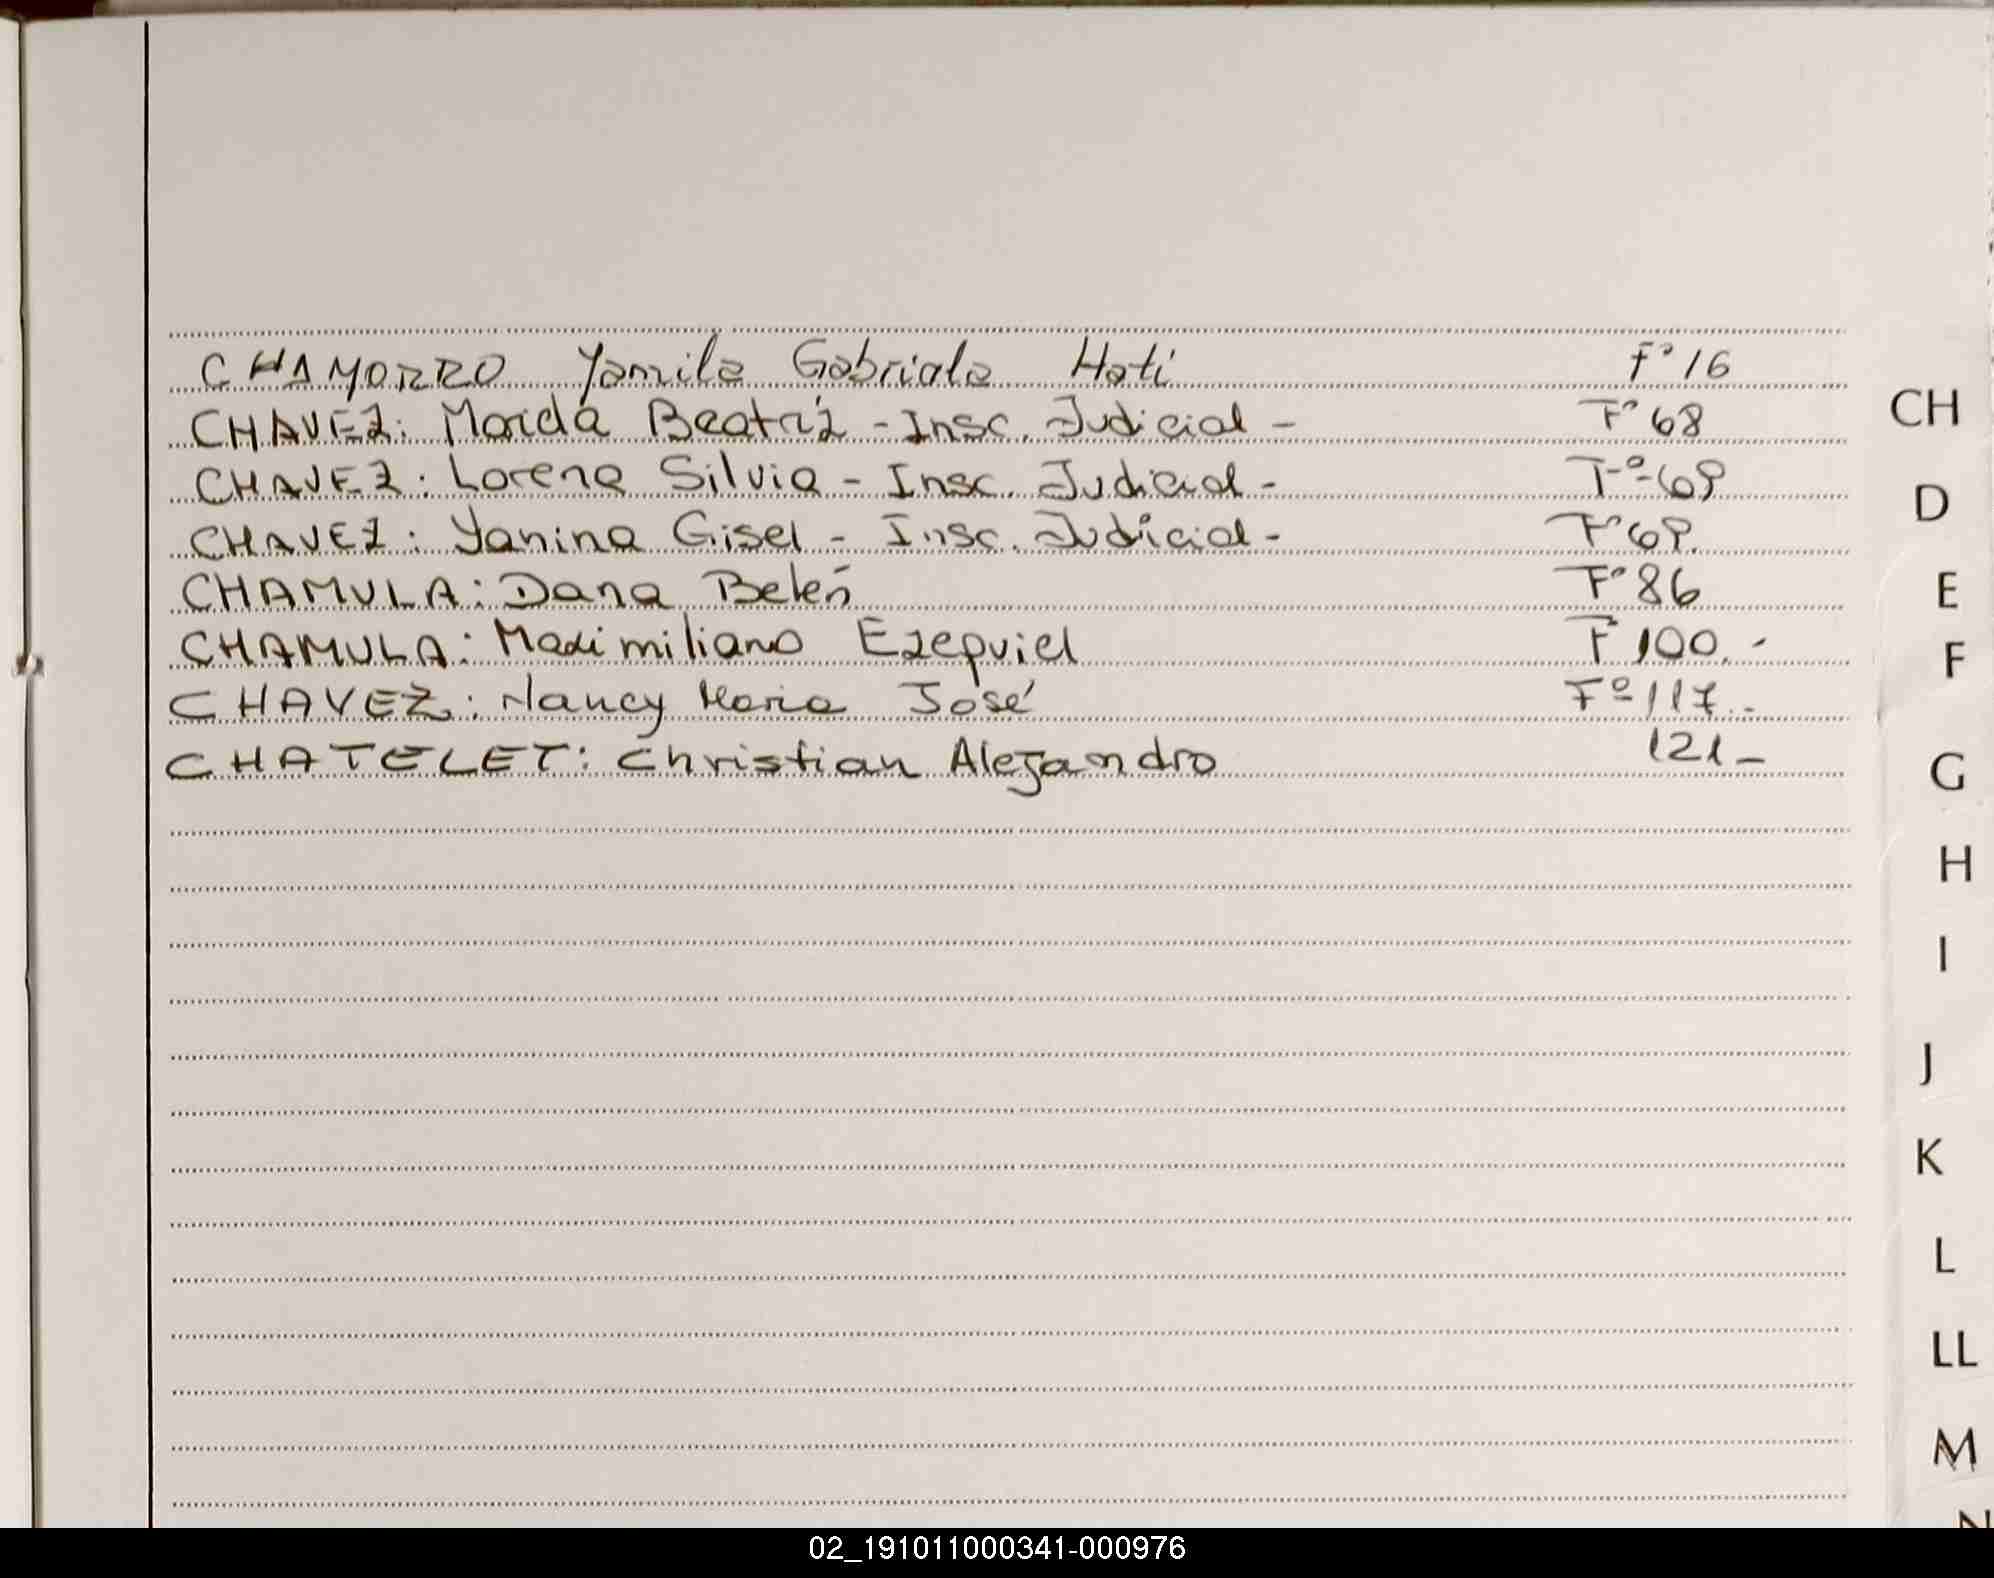 CHAMORRO Yamila Gabriela Hati F° 16
CHAVEZ: Marida Beatriz - Insc. Judicial - F° 68
CHAVEZ: Lorena Silvia - Insc. Judicial - Fº 69
CHAVEZ: Yanina Gisel - Insc. Judicial - F° 69.
CHAMULA: Dana Belén F° 86
CHAMULA: Maximiliano Ezequiel F° 100.-
CHAVEZ: Nancy Maria José Fº 117.-
CHATELET: Christian Alejandro 121-
CH
D
E
F
G
H
I
J
K
L
LL
M
N
02_191011000341-000976